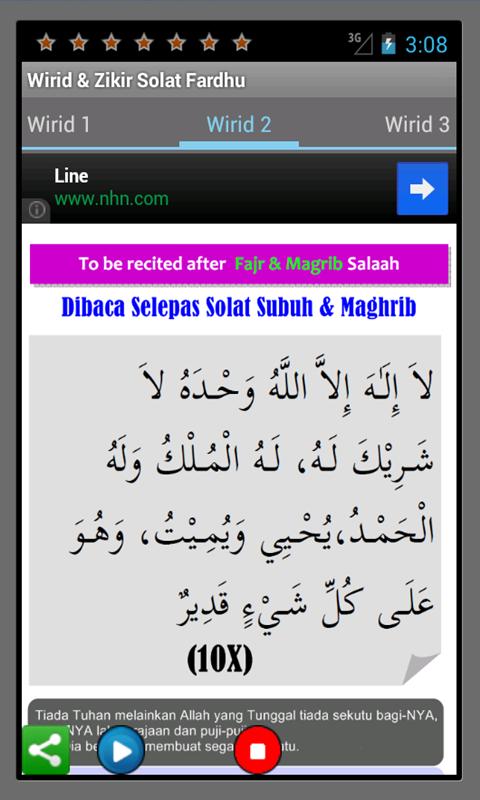 3G 3:08
Wirid & Zikir Solat Fardhu
Wirid 1 Wirid 2 Wirid 3
Line
www.nhn.com
To be recited after Fajr & Magrib Salaah
Dibaca Selepas Solat Subuh & Maghrib
لاَ إِلَهَ إِلاَّ اللَّهُ وَحْدَهُ لاَ
شَرِيْكَ لَهُ، لَهُ الْمُلْكُ وَلَهُ
الْحَمْدُ،يُحْيِي وَيُمِيْتُ، وَهُوَ
عَلَى كُلِّ شَيْءٍ قَدِيرٌ
(10X)
Tiada Tuhan melainkan Allah yang Tunggal tiada sekutu bagi-NYA,
NYA dan puji-
membuat